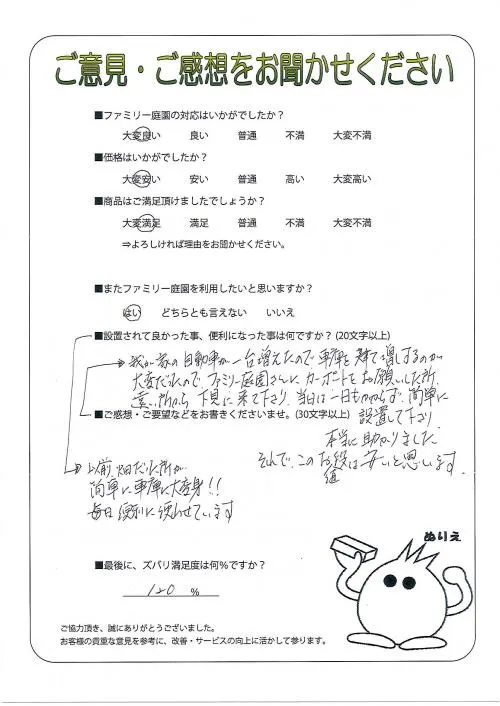 ご意見・ご感想をお聞かせください
■ファミリー庭園の対応はいかがでしたか?
大変良い 良い 普通 不満 大変不満
■価格はいかがでしたか?
大変安い 安い 普通 高い 大変高い
■商品はご満足頂けましたでしょうか?
大変満足 満足 普通 不満 大変不満
⇒よろしければ理由をお聞かせください。
■またファミリー庭園を利用したいと思いますか?
はい どちらとも言えない いいえ
■設置されて良かった事、便利になった事は何ですか? (20文字以上)
我が家の自動車が一台増えたので車庫を建て増しするのが
大変だったので ファミリー庭園さんに カーポートをお願いした所
遠い所から 下見に来て下さり 当日は一日もかからず 簡単に
■ご感想・ご要望などをお書きくださいませ。(30文字以上)
設置して下さり
本当に助かりました
それで、このお値段は安いと思います。
以前 畑だった所が
簡単に車庫に大変身!!
毎日便利に使わせています
ぬりえ
■最後に、ズバリ満足度は何%ですか?
120 %
ご協力頂き、誠にありがとうございました。
お客様の貴重な意見を参考に、改善・サービスの向上に活かして参ります。